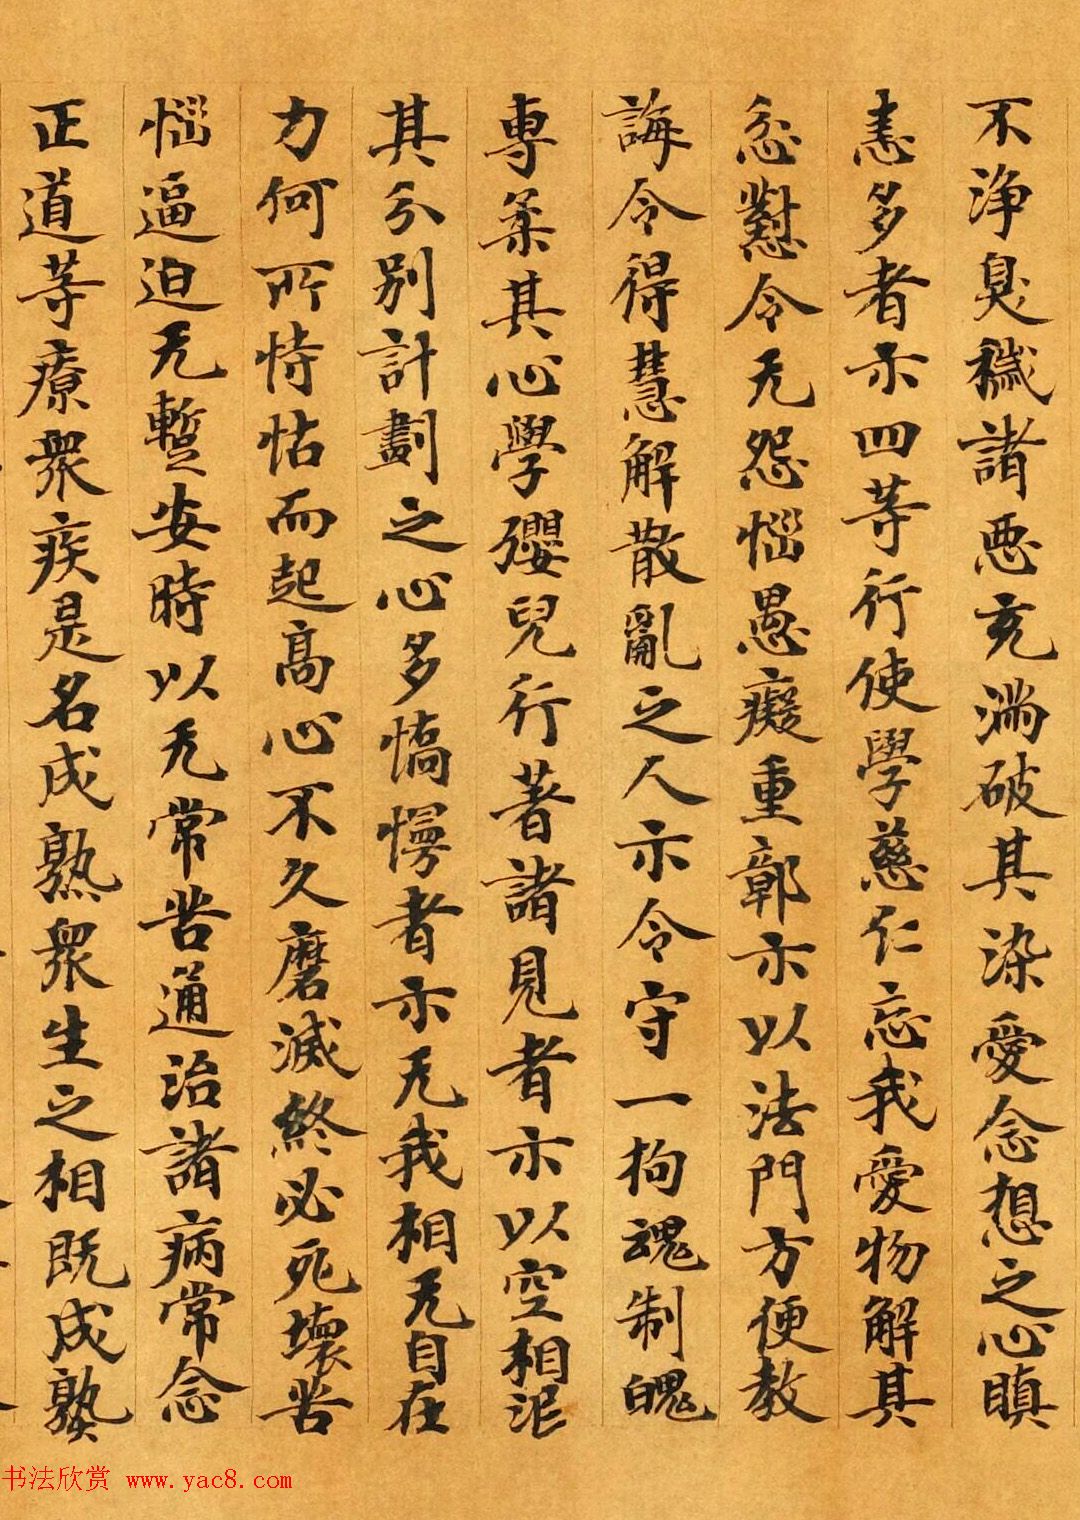 不淨臭穢諸惡充滿破其染愛念想之心瞋
恚多者亦四等行使學慈仁忘我愛物解其
忿懟令无怨惱愚癡重鄣亦以法門方便教
誨令得慧解散亂之人亦令守一拘魂制魄
專柔其心學孾兒行著諸見者亦以空相泯
其分別計劃之心多憍慢者亦无我相无自在
力何所恃怙而起高心不久磨滅終必死壞苦
惱逼迫无暫安時以无常苦通治諸病常念
正道等療衆疾是名成熟衆生之相既成熟
书法欣赏 www.yac8.com